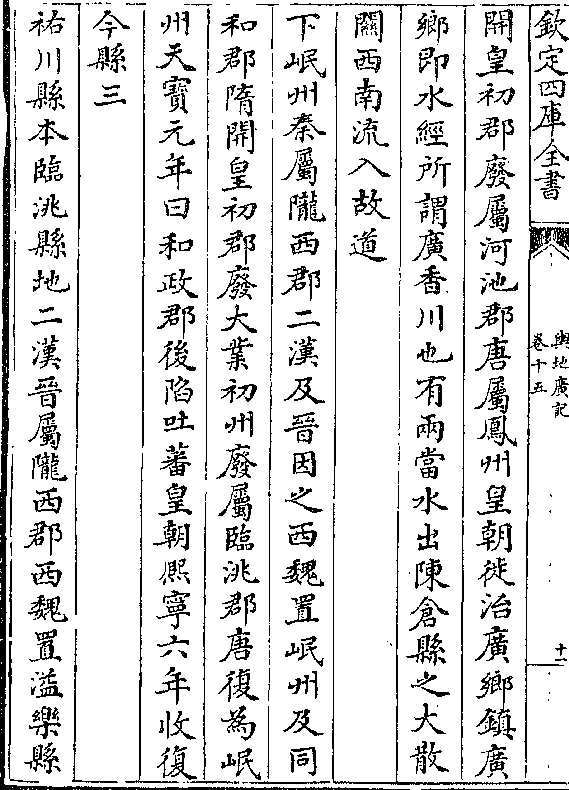 欽定四庫全書
輿地廣記
卷十五
十一
開皇初郡廢屬河池郡唐屬鳳州皇朝徙治廣鄉鎮廣
鄉即水經所謂廣香川也有兩當水出陳倉縣之大散
關西南流入故道
下岷州秦屬隴西郡二漢及晉因之西魏置岷州及同
和郡隋開皇初郡廢大業初州廢屬臨洮郡唐復為岷
州天寶元年曰和政郡後陷吐蕃皇朝熙寧六年收復
今縣三
祐川縣本臨洮縣地二漢晉屬隴西郡西魏置溢樂縣